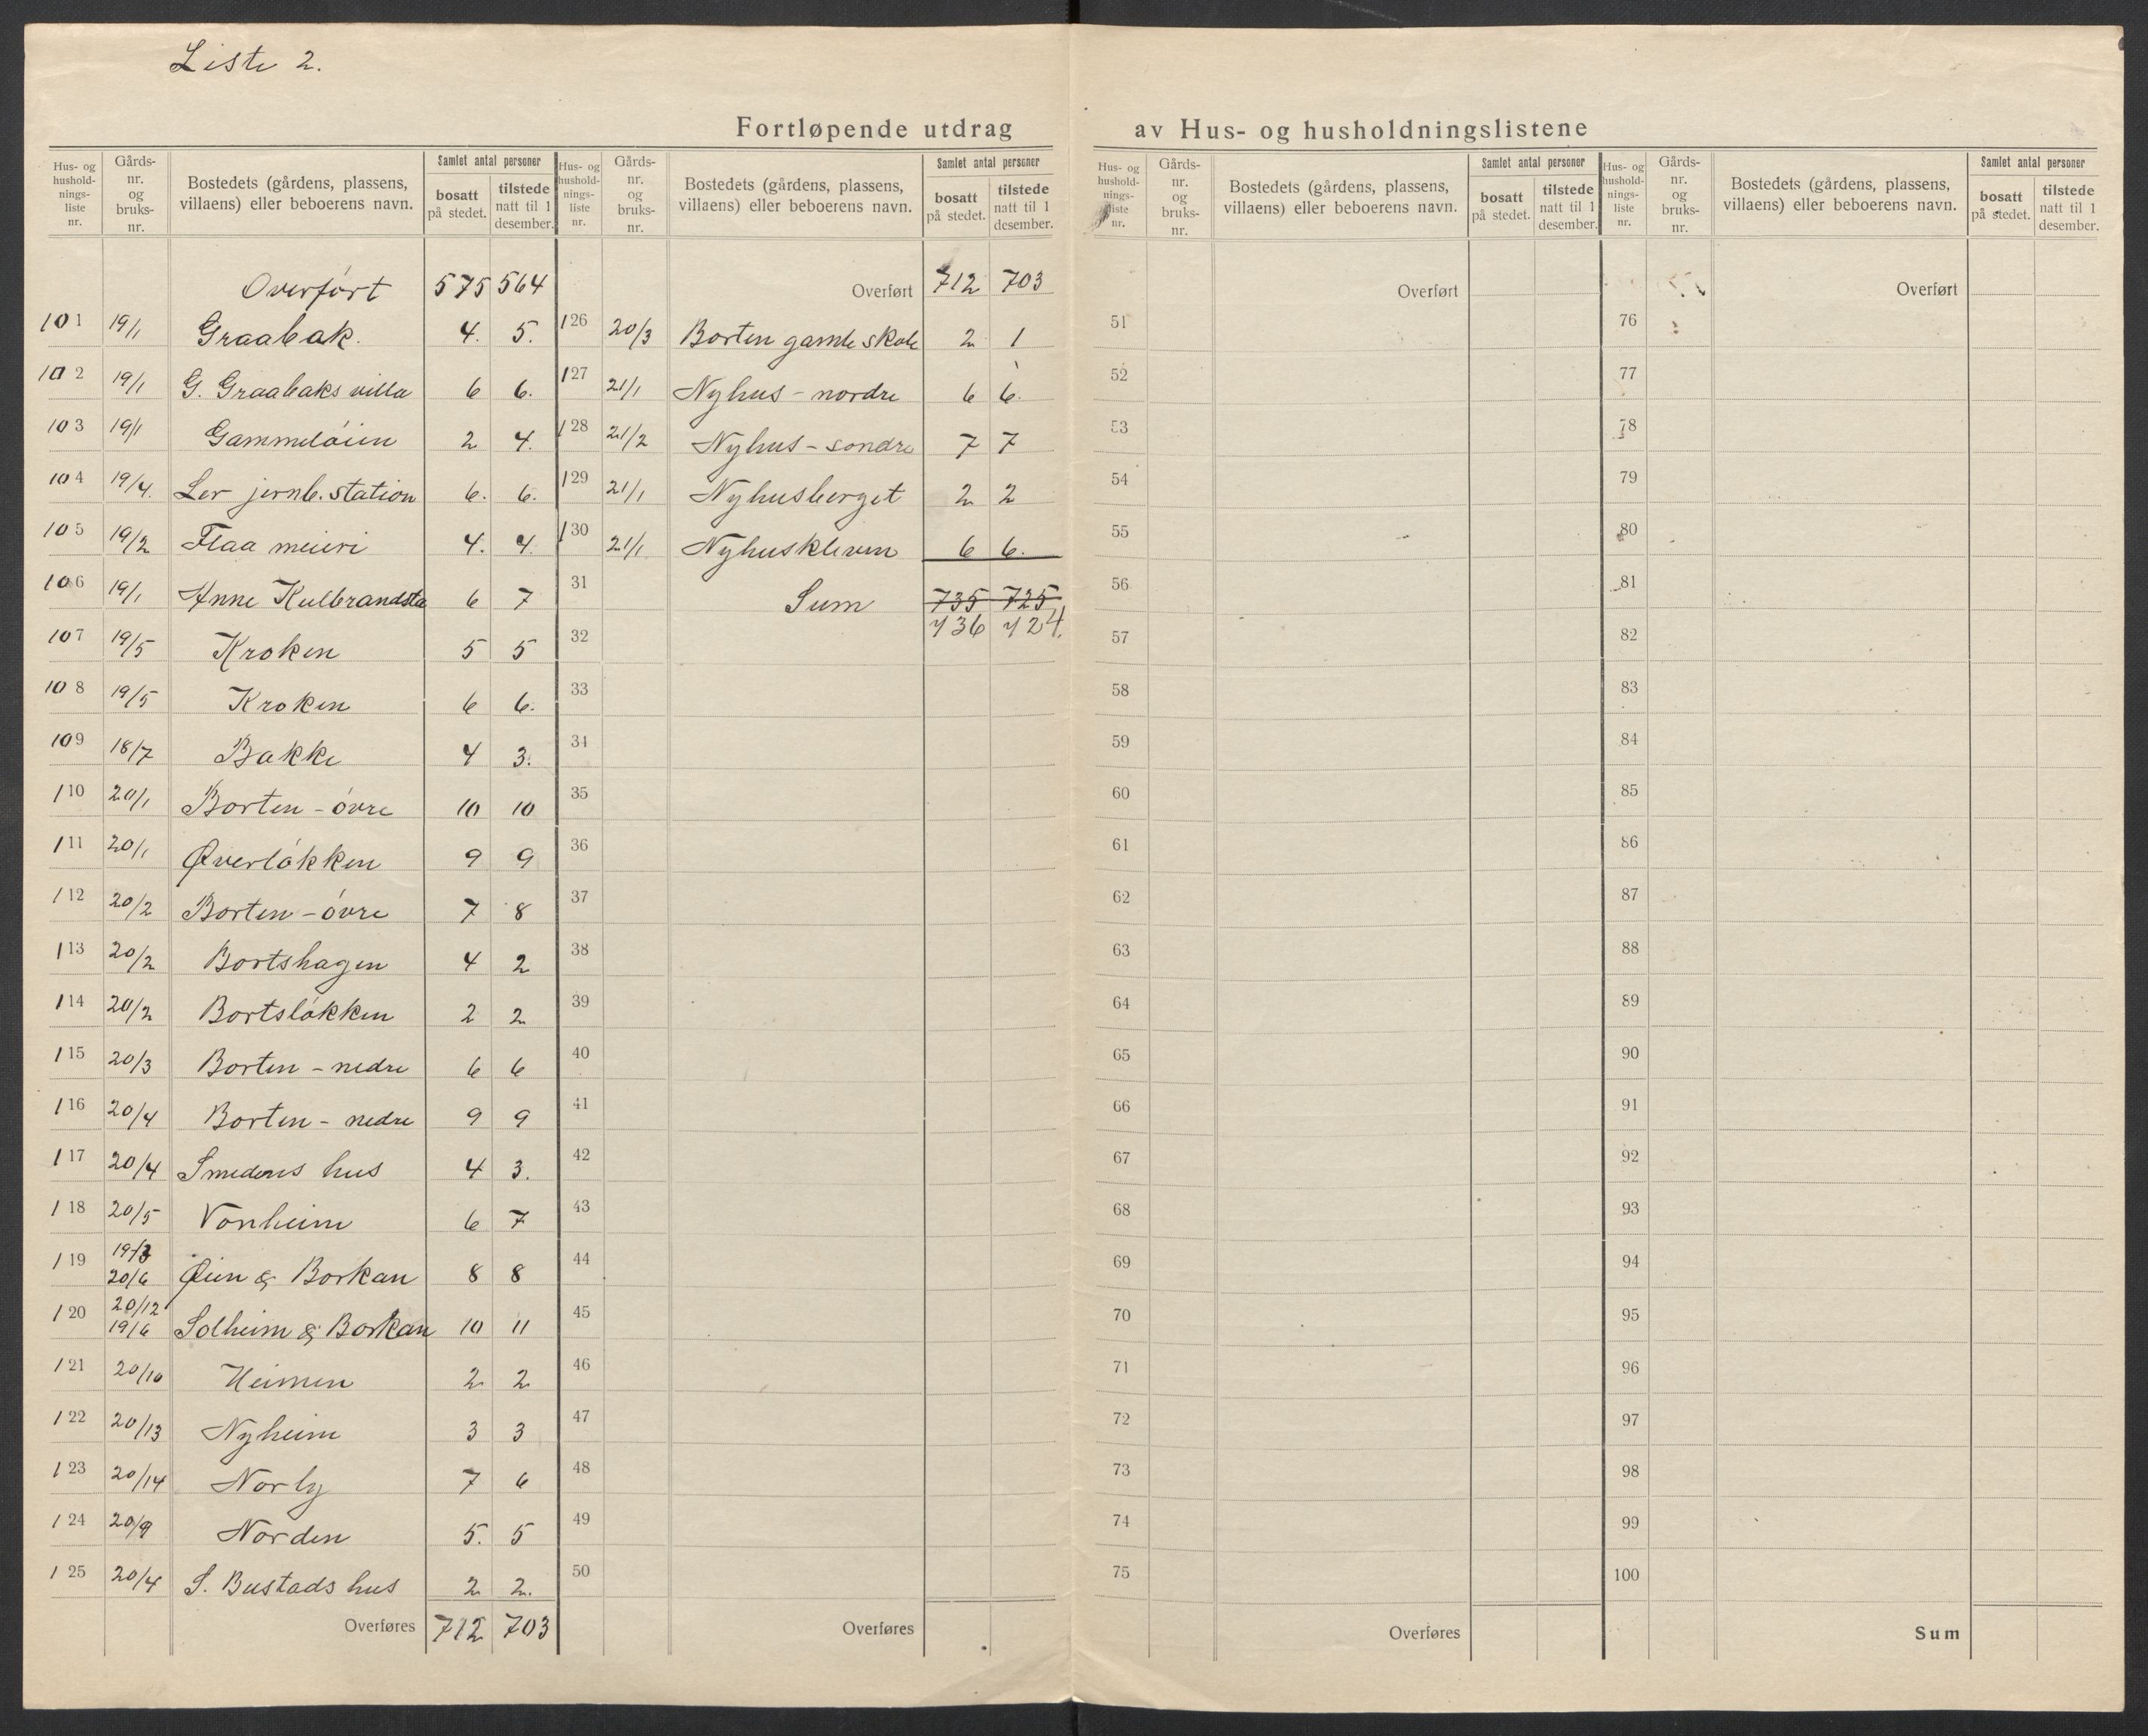 Liste 2.
Fortløpende utdrag av Hus- og husholdningslistene
Hus- og hushold-nings-liste nr. Gårds-nr. og bruks-nr. Bostedets (gårdens, plassens, villaens) eller beboerens navn. Samlet antal personer bosatt på stedet. tilstede natt til 1 desember.
Overført 575 564
101 19/1 Graabak. 4. 5.
102 19/1 G. Graabaks villa 6 6.
103 19/1 Gammeløien 2 4.
104 19/4. Ler jernb. station 6. 6.
105 19/2 Flaa meieri 4. 4.
106 19/1 Anne Kulbrandsta 6 7
107 19/5 Kroken 5 5
108 19/5 Kroken 6 6.
109 18/7 Bakke 4 3.
110 20/1 Borten - óvre 10 10
111 20/1 Øverlókken 9 9
112 20/2 Borten - óvre 7 8
113 20/2 Bortshagen 4 2
114 20/2 Bortslókken 2 2
115 20/3 Borten - nedre 6 6
116 20/4 Borten - nedre 9 9
117 20/4 Smedens hus 4 3.
118 20/5 Vonheim 6 7
119 19/3 20/6 Øien & Borkan 8 8
120 20/12 19/6 Solheim & Borkan 10 11
121 20/10 Heimen 2 2
122 20/13 Nyheim 3 3
123 20/14 Norly 7 6
124 20/9 Norden 5. 5
125 20/4 S. Bustads hus 2 2.
Overføres 712 703
Hus- og hushold-nings-liste nr. Gårds-nr. og bruks-nr. Bostedets (gårdens, plassens, villaens) eller beboerens navn. Samlet antal personer bosatt på stedet. tilstede natt til 1 desember.
Overført 712 703
126 20/3 Borten gamle skole 2 1
127 21/1 Nyhus - nordre 6 6.
128 21/2 Nyhus - sondre 7 7
129 21/1 Nyhusberget 2 2
130 21/1 Nyhuskleven 6 6.
31 Sum 735 725
736 724.
32
33
34
35
36
37
38
39
40
41
42
43
44
45
46
47
48
49
50
Overføres
Hus- og hushold-nings-liste nr. Gårds-nr. og bruks-nr. Bostedets (gårdens, plassens, villaens) eller beboerens navn. Samlet antal personer bosatt på stedet. tilstede natt til 1 desember.
Overført
51
52
53
54
55
56
57
58
59
60
61
62
63
64
65
66
67
68
69
70
71
72
73
74
75
Overføres
Hus- og hushold-nings-liste nr. Gårds-nr. og bruks-nr. Bostedets (gårdens, plassens, villaens) eller beboerens navn. Samlet antal personer bosatt på stedet. tilstede natt til 1 desember.
Overført
76
77
78
79
80
81
82
83
84
85
86
87
88
89
90
91
92
93
94
95
96
97
98
99
100
Sum